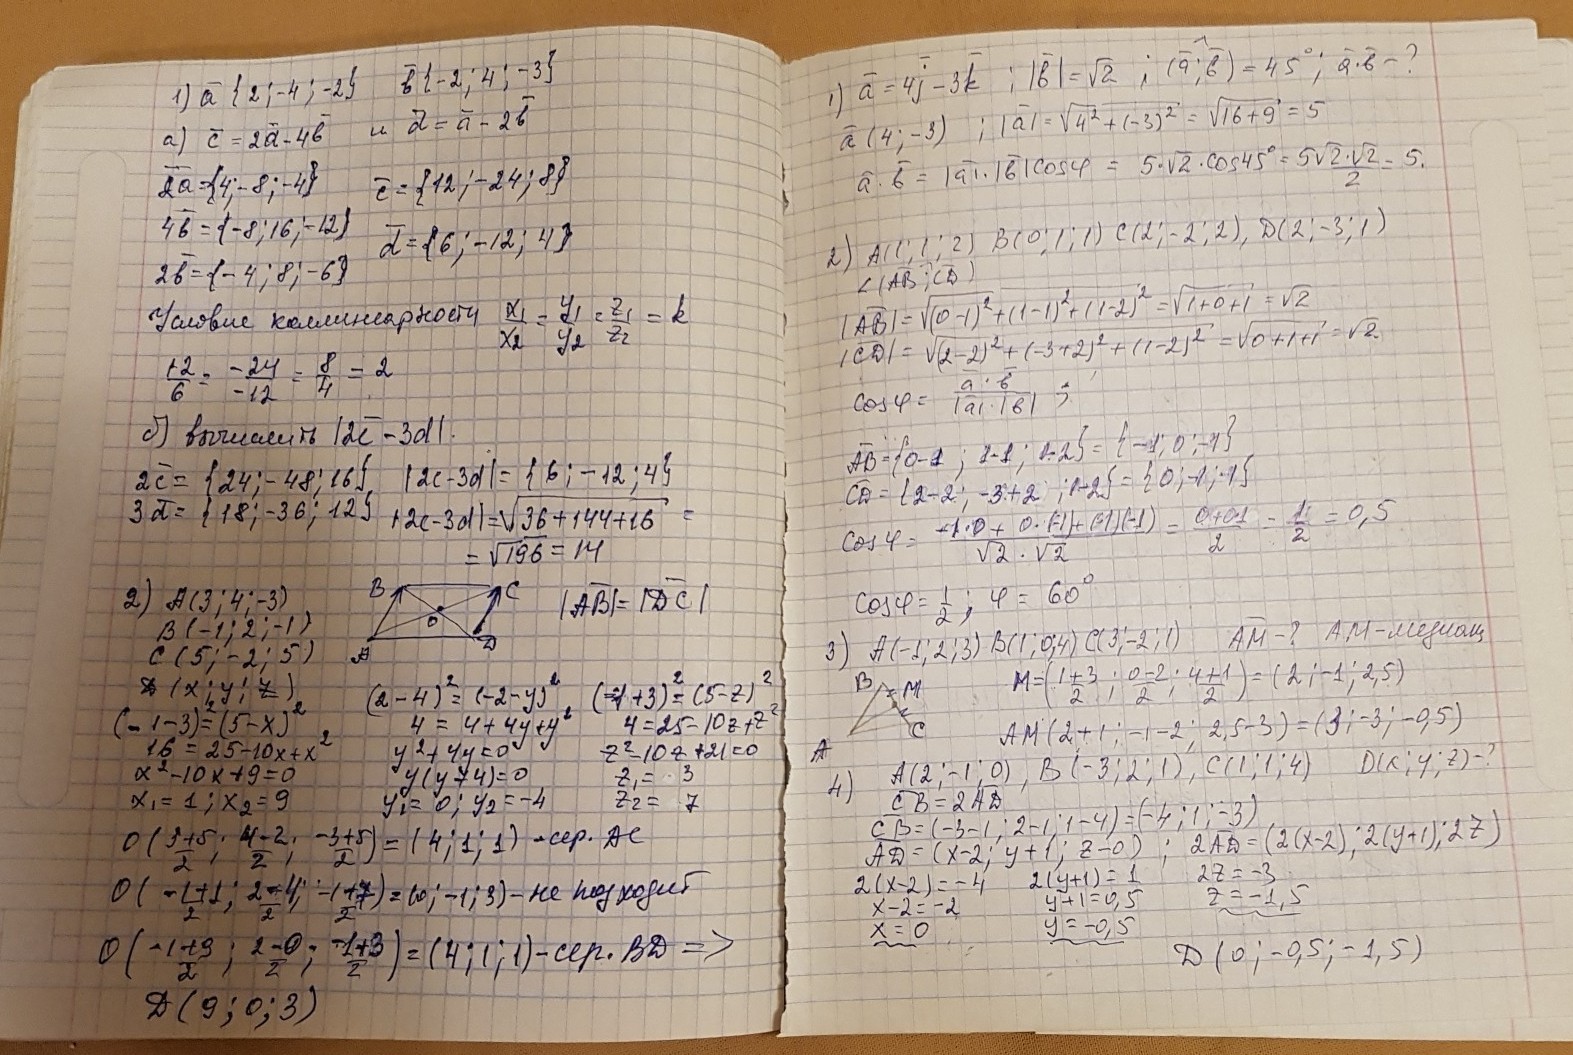 1) a̅ {2; -4; -2}   b̅ {-2; 4; -3}
а) c̅ = 2a̅ - 4b̅   и d̅ = a̅ - 2b̅
2a̅ = {4; -8; -4}   c̅ = {12; -24; 8}
4b̅ = {-8; 16; -12}   d̅ = {6; -12; 4}
2b̅ = {-4; 8; -6}
Условие коллинеарности x₁/x₂ = y₁/y₂ = z₁/z₂ = k
12/6 = -24/-12 = 8/4 = 2
б) вычислить |2c̅ - 3d|.
2c̅ = {24; -48; 16}   |2c-3d| = {6; -12; 4}
3d̅ = {18; -36; 12}   |2c-3d| = √(36+144+16) =
= √196 = 14
2) A(3; 4; -3)   B C   |A̅B̅| = |D̅C̅|
B(-1; 2; -1)   O
C(5; -2; 5)   A D
D(x; y; z)   (2-4)² = (-2-y)²   (-1+3)² = (5-z)²
(-1-3)² = (5-x)²   4 = 4+4y+y²   4 = 25-10z+z²
16 = 25-10x+x²   y²+4y=0   z²-10z+21=0
x²-10x+9=0   y(y+4)=0   z₁= 3
x₁=1; x₂=9   y₁=0; y₂=-4   z₂= 7
O((3+5)/2; (4-2)/2; (-3+5)/2) = (4; 1; 1) - сер. AC
O((-1+1)/2; (2-4)/2; (-1+7)/2) = (0; -1; 3) - не подходит
O((-1+9)/2; (2-0)/2; (-1+3)/2) = (4; 1; 1) - сер. BD =>
D(9; 0; 3)
1) a̅ = 4j̅ - 3k̅ ; |b̅| = √2 ; (a̅;^b̅) = 45°; a̅·b̅ - ?
a̅ (4; -3) ; |a̅| = √(4²+(-3)²) = √(16+9) = 5
a̅·b̅ = |a̅|·|b̅| cosφ = 5·√2·cos45° = 5√2·√2/2 = 5.
2) A(1; 1; 2) B(0; 1; 1) C(2; -2; 2), D(2; -3; 1)
∠(AB; CD)
|A̅B̅| = √((0-1)²+(1-1)²+(1-2)²) = √(1+0+1) = √2
|C̅D̅| = √((2-2)²+(-3+2)²+(1-2)²) = √(0+1+1) = √2.
cosφ = a̅·b̅/|a̅|·|b̅| ;
A̅B̅ = {0-1; 1-1; 1-2} = {-1; 0; -1}
C̅D̅ = {2-2; -3+2; 1-2} = {0; -1; -1}
cosφ = (-1·0 + 0·(-1)+(-1)(-1))/(√2·√2) = (0+0+1)/2 = 1/2 = 0,5
cosφ = 1/2; φ = 60°
3) A(-1; 2; 3) B(1; 0; 4) C(3; -2; 1)   A̅M̅ - ?   AM - медиана
B M   M = ((1+3)/2; (0-2)/2; (4+1)/2) = (2; -1; 2,5)
C
A   AM (2+1; -1-2; 2,5-3) = (3; -3; -0,5)
4) A(2; -1; 0), B(-3; 2; 1), C(1; 1; 4)   D(x; y; z) - ?
C̅B̅ = 2A̅D̅
C̅B̅ = (-3-1; 2-1; 1-4) = (-4; 1; -3)
A̅D̅ = (x-2; y+1; z-0) ; 2A̅D̅ = (2(x-2); 2(y+1); 2z)
2(x-2) = -4   2(y+1) = 1   2z = -3
x-2 = -2   y+1 = 0,5   z = -1,5
x = 0   y = -0,5
D(0; -0,5; -1,5)